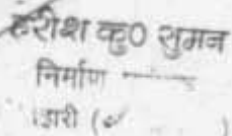 हरीश कु0 सुमन
निर्माण
डारी (